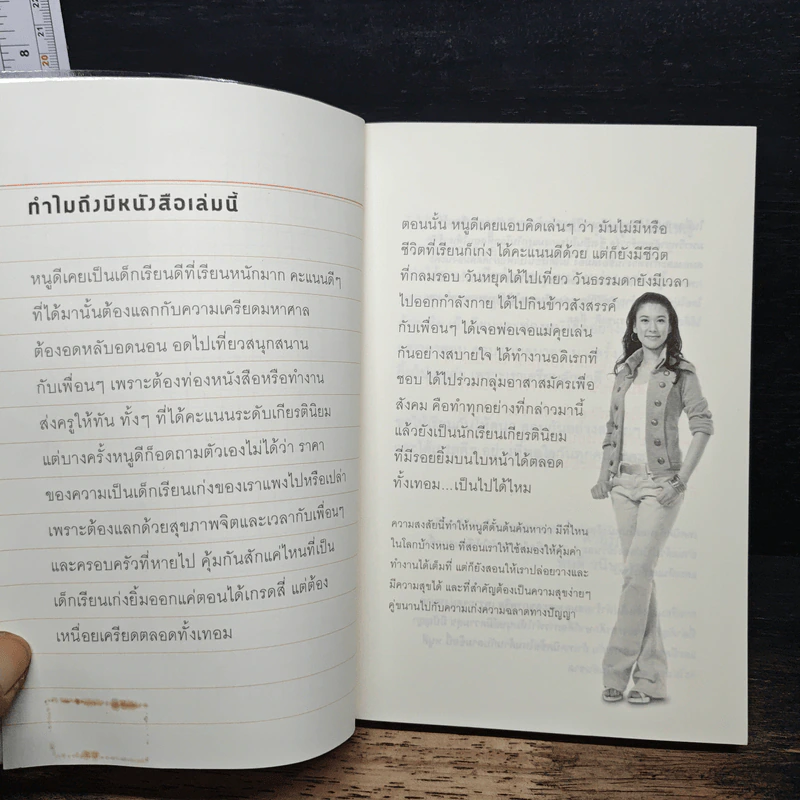 8
21
20
22
ทำไมถึงมีหนังสือเล่มนี้
หนูดีเคยเป็นเด็กเรียนดีที่เรียนหนักมาก คะแนนดีๆ
ที่ได้มานั้นต้องแลกกับความเครียดมหาศาล
ต้องอดหลับอดนอน อดไปเที่ยวสนุกสนาน
กับเพื่อนๆ เพราะต้องท่องหนังสือหรือทำงาน
ส่งครูให้ทัน ทั้งๆ ที่ได้คะแนนระดับเกียรตินิยม
แต่บางครั้งหนูดีก็อดถามตัวเองไม่ได้ว่า ราคา
ของความเป็นเด็กเรียนเก่งของเราแพงไปหรือเปล่า
เพราะต้องแลกด้วยสุขภาพจิตและเวลากับเพื่อนๆ
และครอบครัวที่หายไป คุ้มกันสักแค่ไหนที่เป็น
เด็กเรียนเก่งยิ้มออกแค่ตอนได้เกรดสี่ แต่ต้อง
เหนื่อยเครียดตลอดทั้งเทอม
ตอนนั้น หนูดีเคยแอบคิดเล่นๆ ว่า มันไม่มีหรือ
ชีวิตที่เรียนก็เก่ง ได้คะแนนดีด้วย แต่ก็ยังมีชีวิต
ที่กลมรอบ วันหยุดได้ไปเที่ยว วันธรรมดายังมีเวลา
ไปออกกำลังกาย ได้ไปกินข้าวสังสรรค์
กับเพื่อนๆ ได้เจอพ่อเจอแม่คุยเล่น
กันอย่างสบายใจ ได้ทำงานอดิเรกที่
ชอบ ได้ไปร่วมกลุ่มอาสาสมัครเพื่อ
สังคม คือทำทุกอย่างที่กล่าวมานี้
แล้วยังเป็นนักเรียนเกียรตินิยม
ที่มีรอยยิ้มบนใบหน้าได้ตลอด
ทั้งเทอม...เป็นไปได้ไหม
ความสงสัยนี้ทำให้หนูดีดั้นด้นค้นหาว่า มีที่ไหน
ในโลกบ้างหนอ ที่สอนเราให้ใช้สมองให้คุ้มค่า
ทำงานได้เต็มที่ แต่ก็ยังสอนให้เราปล่อยวางและ
มีความสุขได้ และที่สำคัญต้องเป็นความสุขง่ายๆ
คู่ขนานไปกับความเก่งความฉลาดทางปัญญา